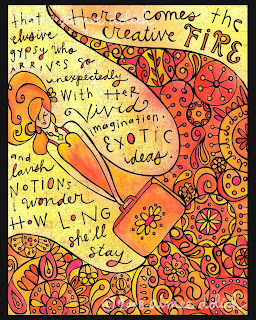 Here comes the
creative FIRE
that
elusive
gypsy who
ARRIVES so
unexpectedly
With Her
Vivid
imagination.
EXOTIC
ideas
and
lavish
NOTIONS.
I wonder
HOW LONG
she'll
stay